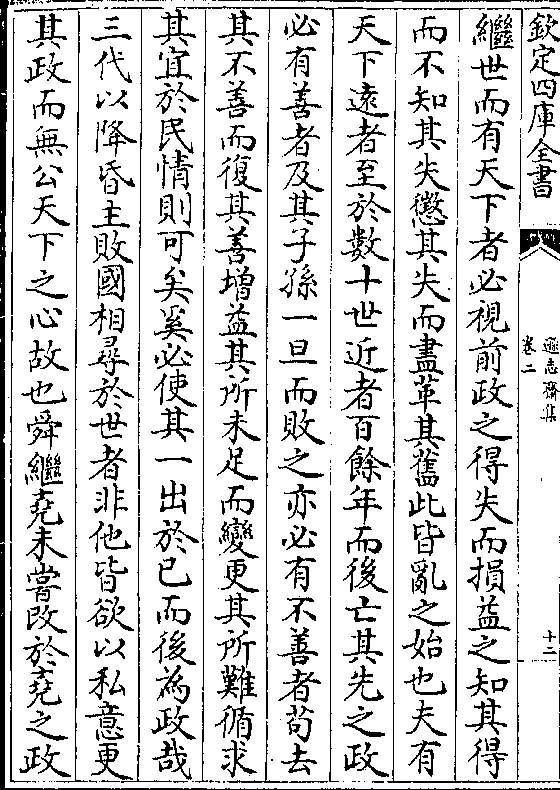 欽定四庫全書
遜志齋集
卷二
十二
繼世而有天下者必視前政之得失而損益之知其得
而不知其失懲其失而盡革其舊此皆亂之始也夫有
天下遠者至於數十世近者百餘年而後亡其先之政
必有善者及其子孫一旦而敗之亦必有不善者苟去
其不善而復其善增益其所未足而變更其所難循求
其宜於民情則可矣奚必使其一出於已而後為政哉
三代以降昏主敗國相尋於世者非他皆欲以私意更
其政而無公天下之心故也舜繼堯未嘗改於堯之政